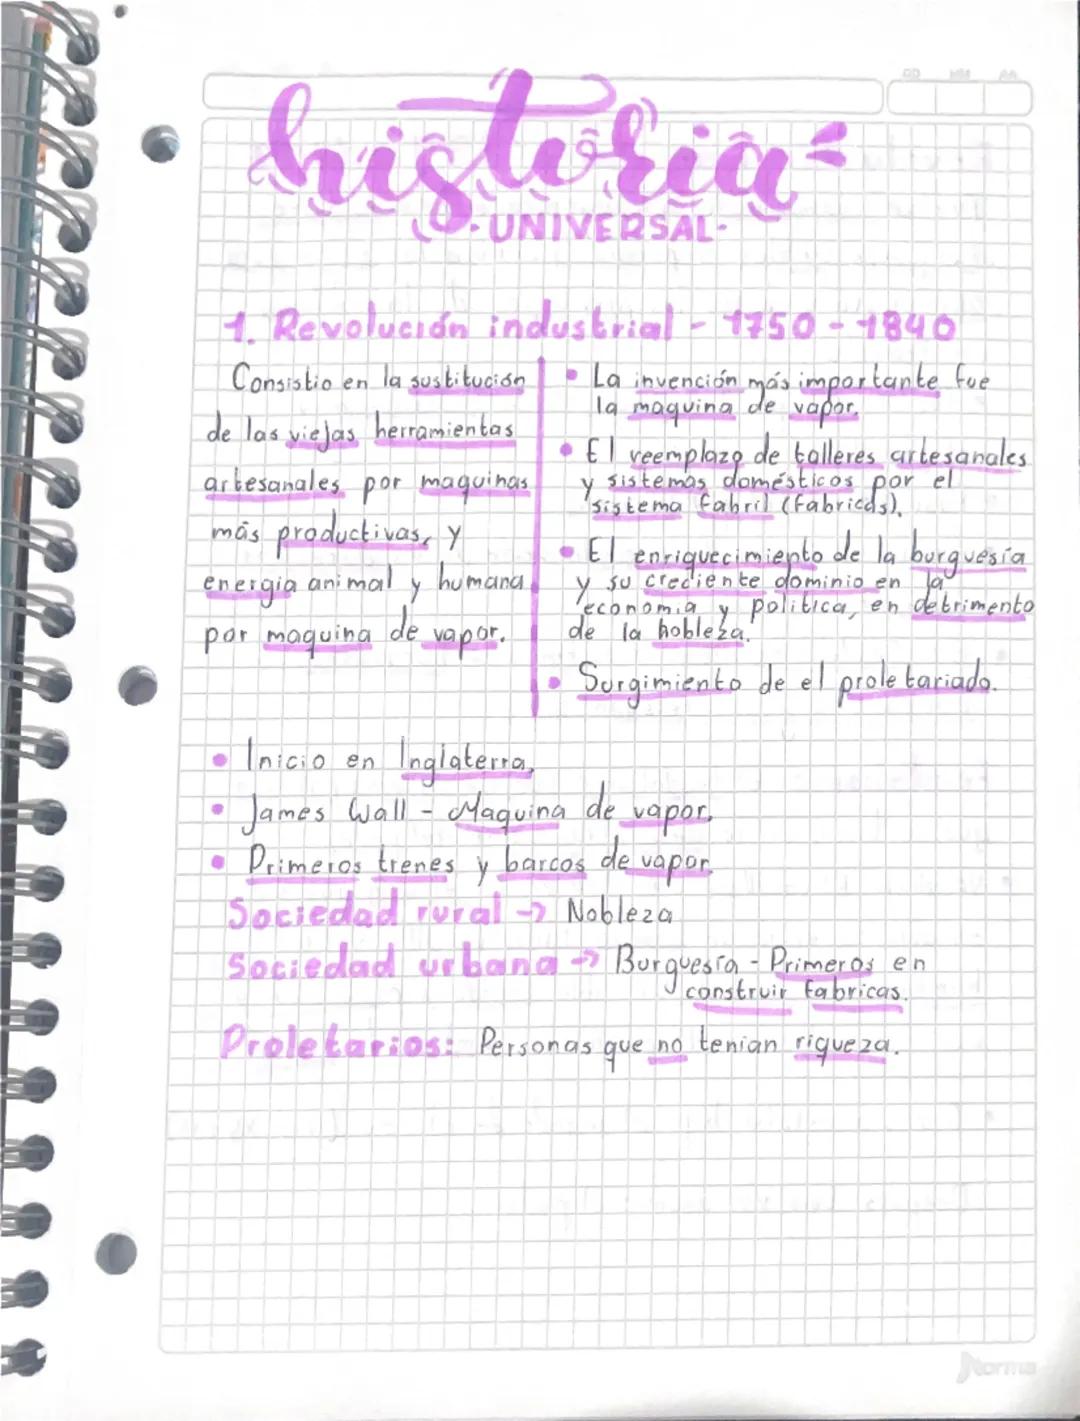 DD MM AA
historia
·UNIVERSAL·
1. Revolución industrial - 1750 - 1840
Consistio en la sustitución
de las viejas herramientas
artesanales por maquinas
más productivas, y
energia animal y humana
por maquina de vapor.
• La invención más importante fue
la maquina de vapor.
• El reemplazo de talleres artesanales
y sistemas domésticos por el
sistema fabril (fabricas).
• El enriquecimiento de la burguesía
y su creciente dominio en la
economia y politica, en detrimento
de la nobleza.
• Surgimiento de el proletariado.
• Inicio en Inglaterra.
• James Wall - Maquina de vapor.
• Primeros trenes y barcos de vapor.
Sociedad rural -> Nobleza
Sociedad urbana -> Burguesía - Primeros en
construir fabricas.
Proletarios: Personas que no tenian riqueza.
Norma